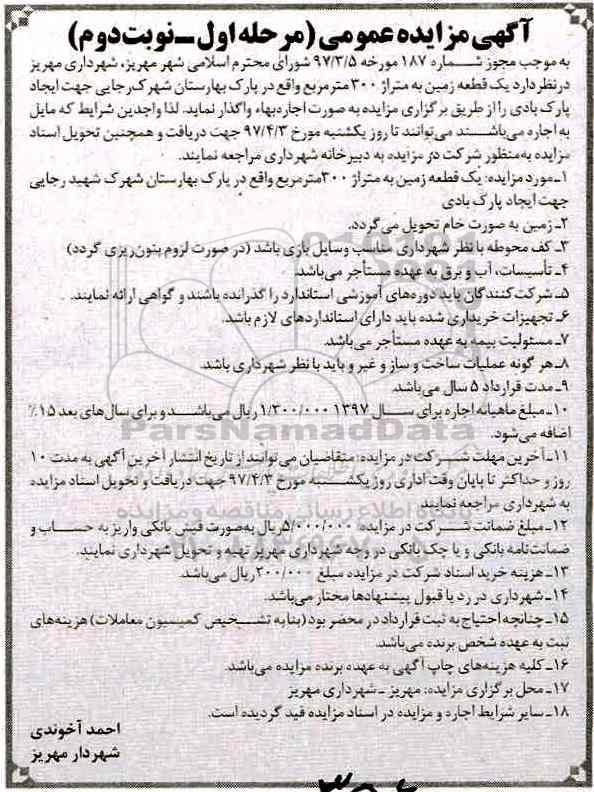 آگهی مزایده عمومی (مرحله اول ـ نوبت دوم)
به موجب مجوز شماره ۱۸۷ مورخه ۹۷/۳/۵ شورای محترم اسلامی شهر مهریز، شهرداری مهریز
در نظر دارد یک قطعه زمین به متراژ ۳۰۰ مترمربع واقع در پارک بهارستان شهرک رجایی جهت ایجاد
پارک بادی را از طریق برگزاری مزایده به صورت اجاره‌بهاء واگذار نماید. لذا واجدین شرایط که مایل
به اجاره می‌باشند می‌توانند تا روز یکشنبه مورخ ۹۷/۴/۳ جهت دریافت و همچنین تحویل اسناد
مزایده به‌منظور شرکت در مزایده به دبیرخانه شهرداری مراجعه نمایند.
۱ـ مورد مزایده: یک قطعه زمین به متراژ ۳۰۰مترمربع واقع در پارک بهارستان شهرک شهید رجایی
جهت ایجاد پارک بادی
۲ـ زمین به صورت خام تحویل می‌گردد.
۳ـ کف محوطه با نظر شهرداری مناسب وسایل بازی باشد (در صورت لزوم بتون‌ریزی گردد)
۴ـ تأسیسات، آب و برق به عهده مستأجر می‌باشد.
۵ـ شرکت‌کنندگان باید دوره‌های آموزشی استاندارد را گذرانده باشند و گواهی ارائه نمایند.
۶ـ تجهیزات خریداری شده باید دارای استانداردهای لازم باشد.
۷ـ مسئولیت بیمه به عهده مستأجر می‌باشد.
۸ـ هر گونه عملیات ساخت و ساز و غیر و باید با نظر شهرداری باشد.
۹ـ مدت قرارداد ۵ سال می‌باشد.
۱۰ـ مبلغ ماهیانه اجاره برای سال ۱۳۹۷ ۱/۳۰۰/۰۰۰ ریال می‌باشد و برای سال‌های بعد ۱۵٪
اضافه می‌شود.
ParsNamadData
۱۱ـ آخرین مهلت شرکت در مزایده: متقاضیان می‌توانند از تاریخ انتشار آخرین آگهی به مدت ۱۰
روز و حداکثر تا پایان وقت اداری روز یکشنبه مورخ ۹۷/۴/۳ جهت دریافت و تحویل اسناد مزایده
به شهرداری مراجعه نمایند
۱۲ـ مبلغ ضمانت شرکت در مزایده ۵/۰۰۰/۰۰۰ریال به‌صورت فیش بانکی واریز به حساب و
ضمانت‌نامه بانکی و یا چک بانکی در وجه شهرداری مهریز تهیه و تحویل شهرداری نمایند.
۱۳ـ هزینه خرید اسناد شرکت در مزایده مبلغ ۲۰۰/۰۰۰ریال می‌باشد.
۱۴ـ شهرداری در رد یا قبول پیشنهادها مختار می‌باشد.
۱۵ـ چنانچه احتیاج به ثبت قرارداد در محضر بود (بنا به تشخیص کمیسیون معاملات) هزینه‌های
ثبت به عهده شخص برنده می‌باشد.
۱۶ـ کلیه هزینه‌های چاپ آگهی به عهده برنده مزایده می‌باشد.
۱۷ـ محل برگزاری مزایده: مهریز ـ شهرداری مهریز
۱۸ـ سایر شرایط اجاره و مزایده در اسناد مزایده قید گردیده است.
احمد آخوندی
شهردار مهریز